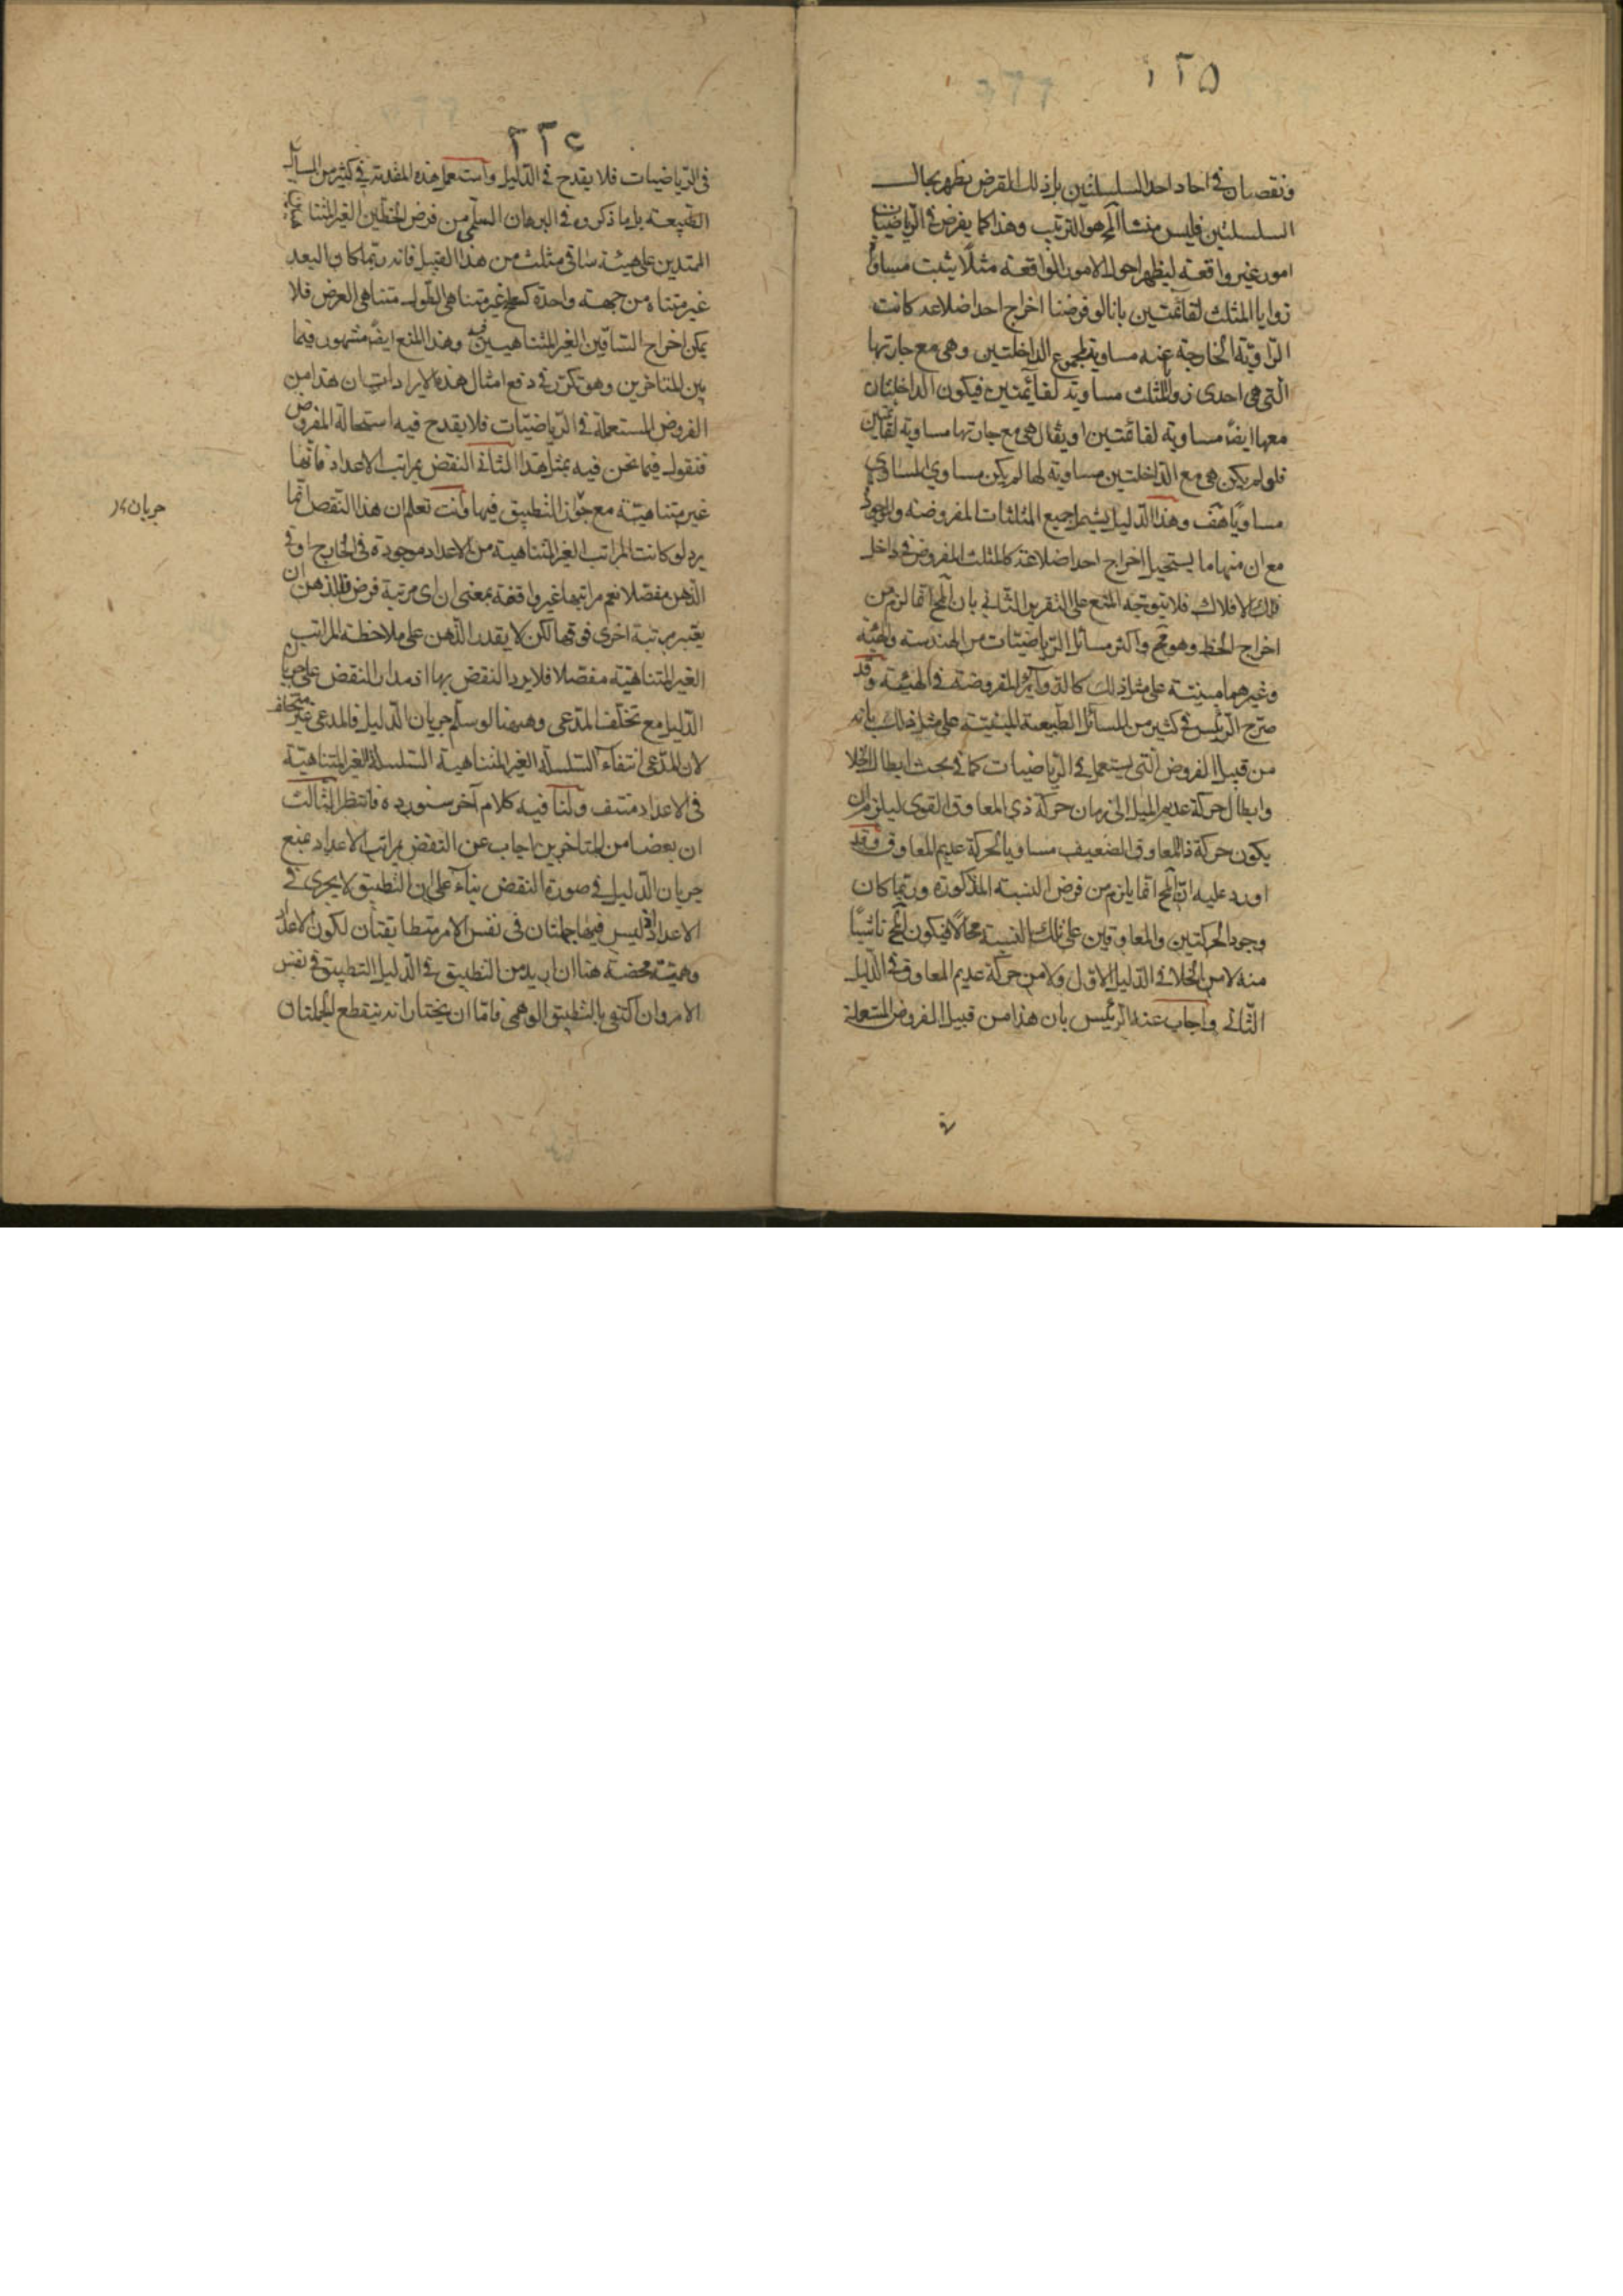 ٢٢٥
ونقصان في احاد احد السلسلتين بل ذلك المفرض يظهر بحال
السلسلتين فليس منشأ المح هو الترتيب وهذا كما يفرض في الرياضيات
امور غير واقعة ليظهر احوال الامور الواقعة مثلا يثبت مساواة
زوايا المثلث لقائمتين بانا لو فرضنا اخراج احد اضلاعه كانت
الزاوية الخارجة عنه مساوية لمجموع الداخلتين وهي مع جارتها
التي هي احدى زوايا المثلث مساوية لقائمتين فيكون الداخلتان
معها ايضا مساوية لقائمتين او يقال هي مع جارتها مساوية لقائمتين
فلو لم يكن هي مع الداخلتين مساوية لها لم يكن مساوي المساوي
مساويا هف وهذا الدليل يشمل جميع المثلثات المفروضة والموجودة
مع ان منها ما يستحيل اخراج احد اضلاعه كالمثلث المفروض في داخل
فلك الافلاك فلا يتوجه المنع على التقرير الثاني بان المح انما لزم من
اخراج الخط وهو مح واكثر مسائل الرياضيات من الهندسة والهيئة
وغيرهما مبنية على مثل ذلك كالدوائر المفروضة في الهيئة وقد
صرح الرئيس في كثير من المسائل الطبيعية المبنية على مثل ذلك بانه
من قبيل الفروض التي يستعمل في الرياضيات كما في بحث ابطال الخلا
وابطال حركة عديم الميل الى زمان حركة ذي المعاوق القوى ليلزم ان
يكون حركة ذي المعاوق الضعيف مساويا لحركة عديم المعاوق وقد
اورد عليه ان المح انما يلزم من فرض النسبة المذكورة وربما كان
وجود الحركتين والمعاوقين على تلك النسبة محالا فيكون المح ناشيا
منه لا من الخلا في الدليل الاول ولا من حركة عديم المعاوق في الدليل
الثاني واجاب عنه الرئيس بان هذا من قبيل الفروض المستعملة
٢٢٦
في الرياضيات فلا يقدح في الدليل واستعمل هذه المقدمة في كثير من المسائل
الطبيعية بل ما ذكروه في البرهان السلمي من فرض الخطين الغير المتناهيين
الممتدين على هيئة ساقي مثلث من هذا القبيل فانه ربما كان البعد
غير متناه من جهة واحدة كسطح غير متناهي الطول متناهي العرض فلا
يمكن اخراج الساقين الغير المتناهيين فيه وهذا المنع ايضا مشهور فيما
بين المتاخرين وهو تكرر في دفع امثال هذه الايرادات بان هذا من
الفروض المستعملة في الرياضيات فلا يقدح فيه استحالة المفروض
فنقول فيما نحن فيه بمثل هذا الثاني النقض بمراتب الاعداد فانها
غير متناهية مع جواز التطبيق فيها وانت تعلم ان هذا النقض انما
يرد لو كانت المراتب الغير المتناهية من الاعداد موجودة في الخارج او في
الذهن مفصلا نعم مراتبها غير واقفة بمعنى ان اي مرتبة فرض فللذهن ان
يعتبر مرتبة اخرى فوقها لكن لا يقدر الذهن على ملاحظة المراتب
الغير المتناهية مفصلا فلا يرد النقض بها اذ مدار النقض على جريان
الدليل مع تخلف المدعى وههنا لو سلم جريان الدليل فالمدعى غير متخلف
لان المدعى انتفاء السلسلة الغير المتناهية السلسلة الغير المتناهية
في الاعداد منتف ولنا فيه كلام آخر سنورده فانتظر الثالث
ان بعضا من المتاخرين اجاب عن النقض بمراتب الاعداد بمنع
جريان الدليل في صورة النقض بناء على ان التطبيق لا يجرى في
الاعداد اذ ليس فيها جملتان في نفس الامر متطابقتان لكون الاعداد
وهمية محضة هنا ان اريد من التطبيق في الدليل التطبيق في نفس
الامر وان اكتفى بالتطبيق الوهمي فاما ان يختار انه ينقطع الجملتان
جريان